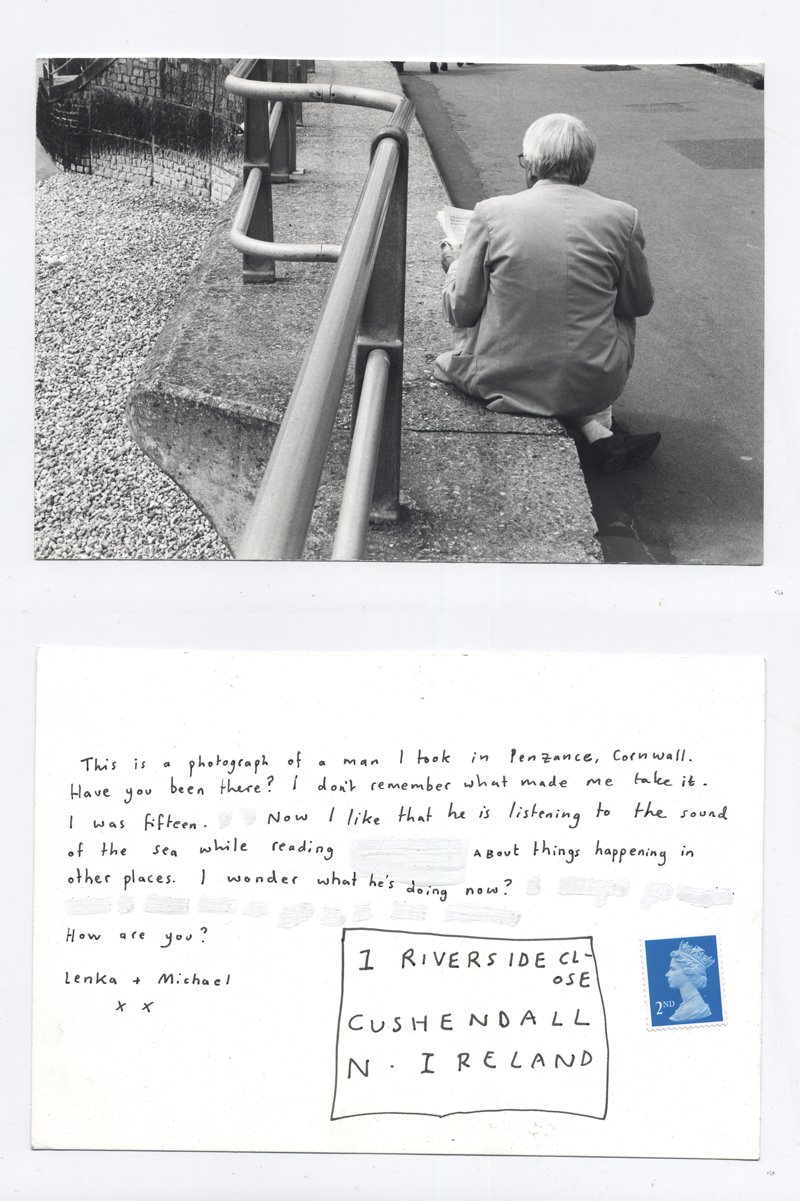 This is a photograph of a man I took in Penzance, Cornwall.
Have you been there? I don't remember what made me take it.
I was fifteen. Now I like that he is listening to the sound
of the sea while reading ABOUT things happening in
other places. I wonder what he's doing now?
How are you?
Lenka + Michael
x x
1 RIVERSIDE CL-
OSE
CUSHENDALL
N. IRELAND
2ND